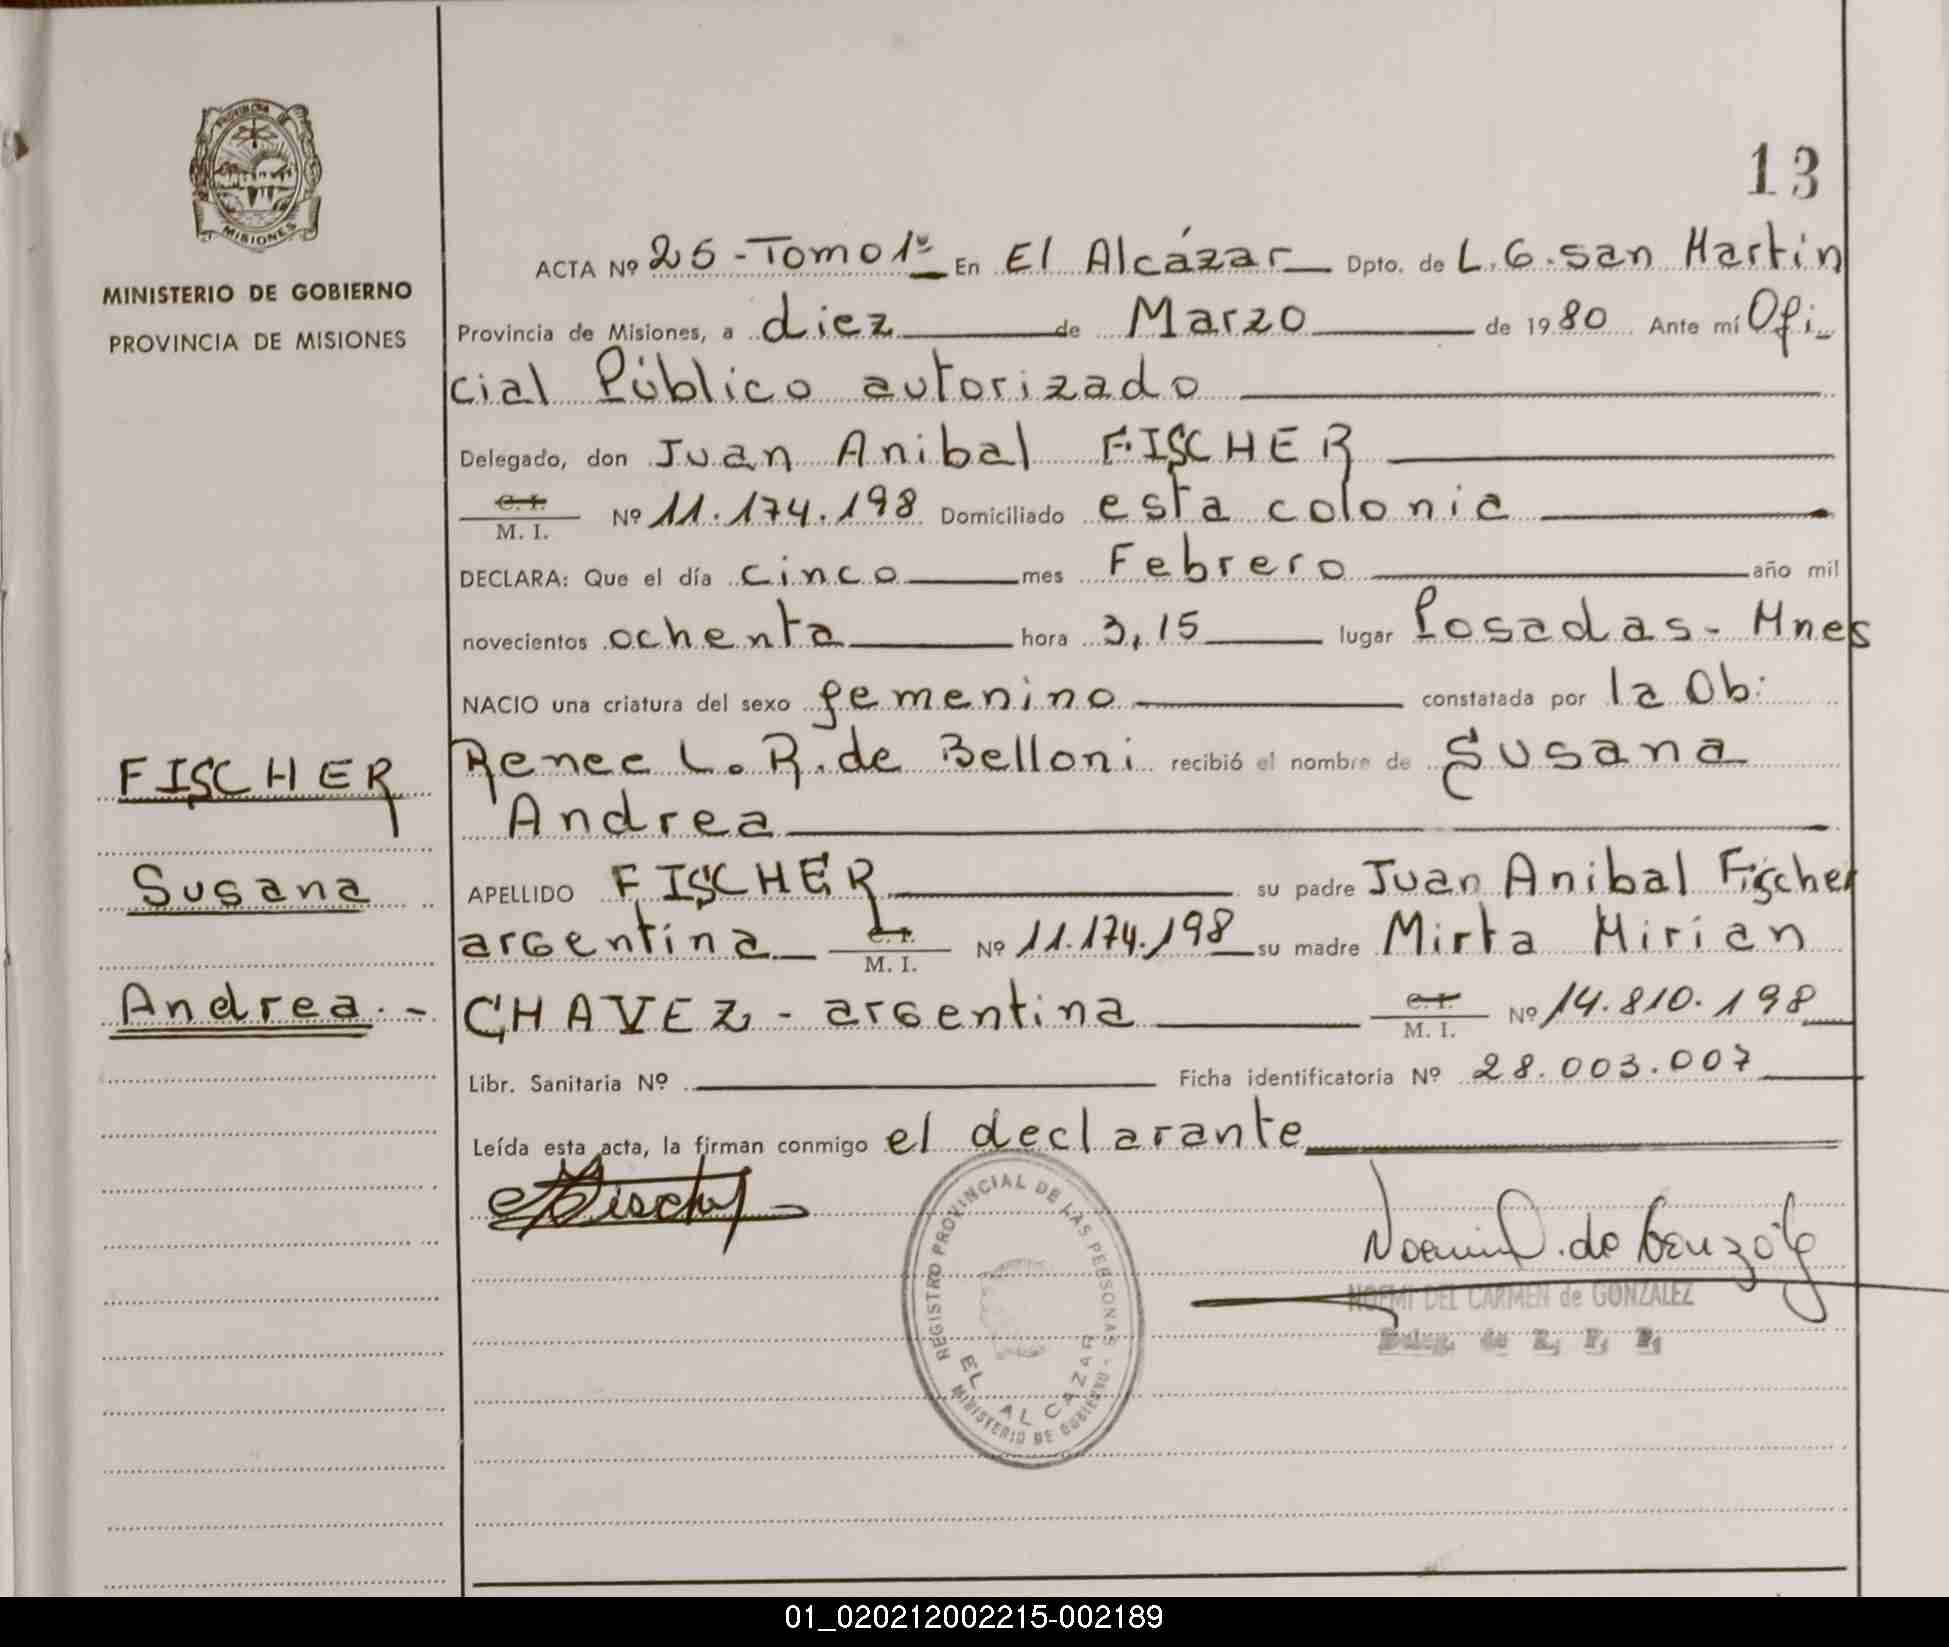 PROVINCIA DE
MISIONES
MINISTERIO DE GOBIERNO
PROVINCIA DE MISIONES
FISCHER
Susana
Andrea.-
13
ACTA Nº 25 - Tomo 1º En El Alcázar Dpto. de L. G. san Martin
Provincia de Misiones, a diez de Marzo de 1980 Ante mí Ofi-
cial Público autorizado
Delegado, don Juan Anibal FISCHER
C. I.
M. I. Nº 11.174.198 Domiciliado esta colonia
DECLARA: Que el día cinco mes Febrero año mil
novecientos ochenta hora 3,15 lugar Posadas - Mnes
NACIO una criatura del sexo femenino constatada por la Ob:
Renee L. R. de Belloni recibió el nombre de Susana
Andrea
APELLIDO FISCHER su padre Juan Anibal Fischer
argentina C. I. M. I. Nº 11.174.198 su madre Mirta Mirian
CHAVEZ - argentina C. I. M. I. Nº 14.810.198
Libr. Sanitaria Nº Ficha identificatoria Nº 28.003.007
Leída esta acta, la firman conmigo el declarante
REGISTRO PROVINCIAL DE LAS PERSONAS -
EL ALCAZAR
MINISTERIO DE GOBIERNO
NOEMI DEL CARMEN de GONZALEZ
Deleg. de R. P. P.
01_020212002215-002189